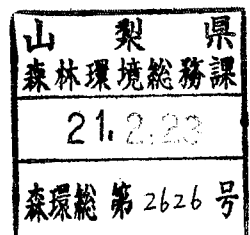 山梨県
森林環境総務課
21.2.23
森環総 第2626号